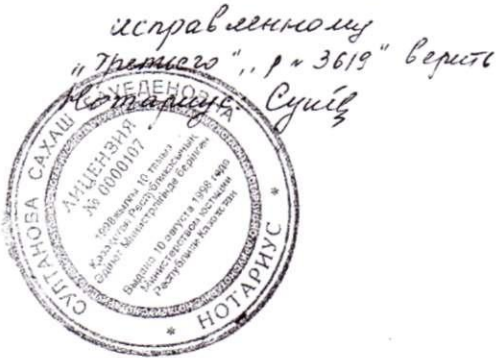 исправленному
„третьего", „р № 3619" верить
Нотариус:
СУЛТАНОВА САХАШ АУЕДЕНОВНА
* НОТАРИУС *
ЛИЦЕНЗИЯ
№ 0000107
1998 жылғы 10 тамыз
Қазақстан Республикасының
Әділет Министрлігінде берілген
Выдана 10 августа 1998 года
Министерством юстиции
Республики Казахстан